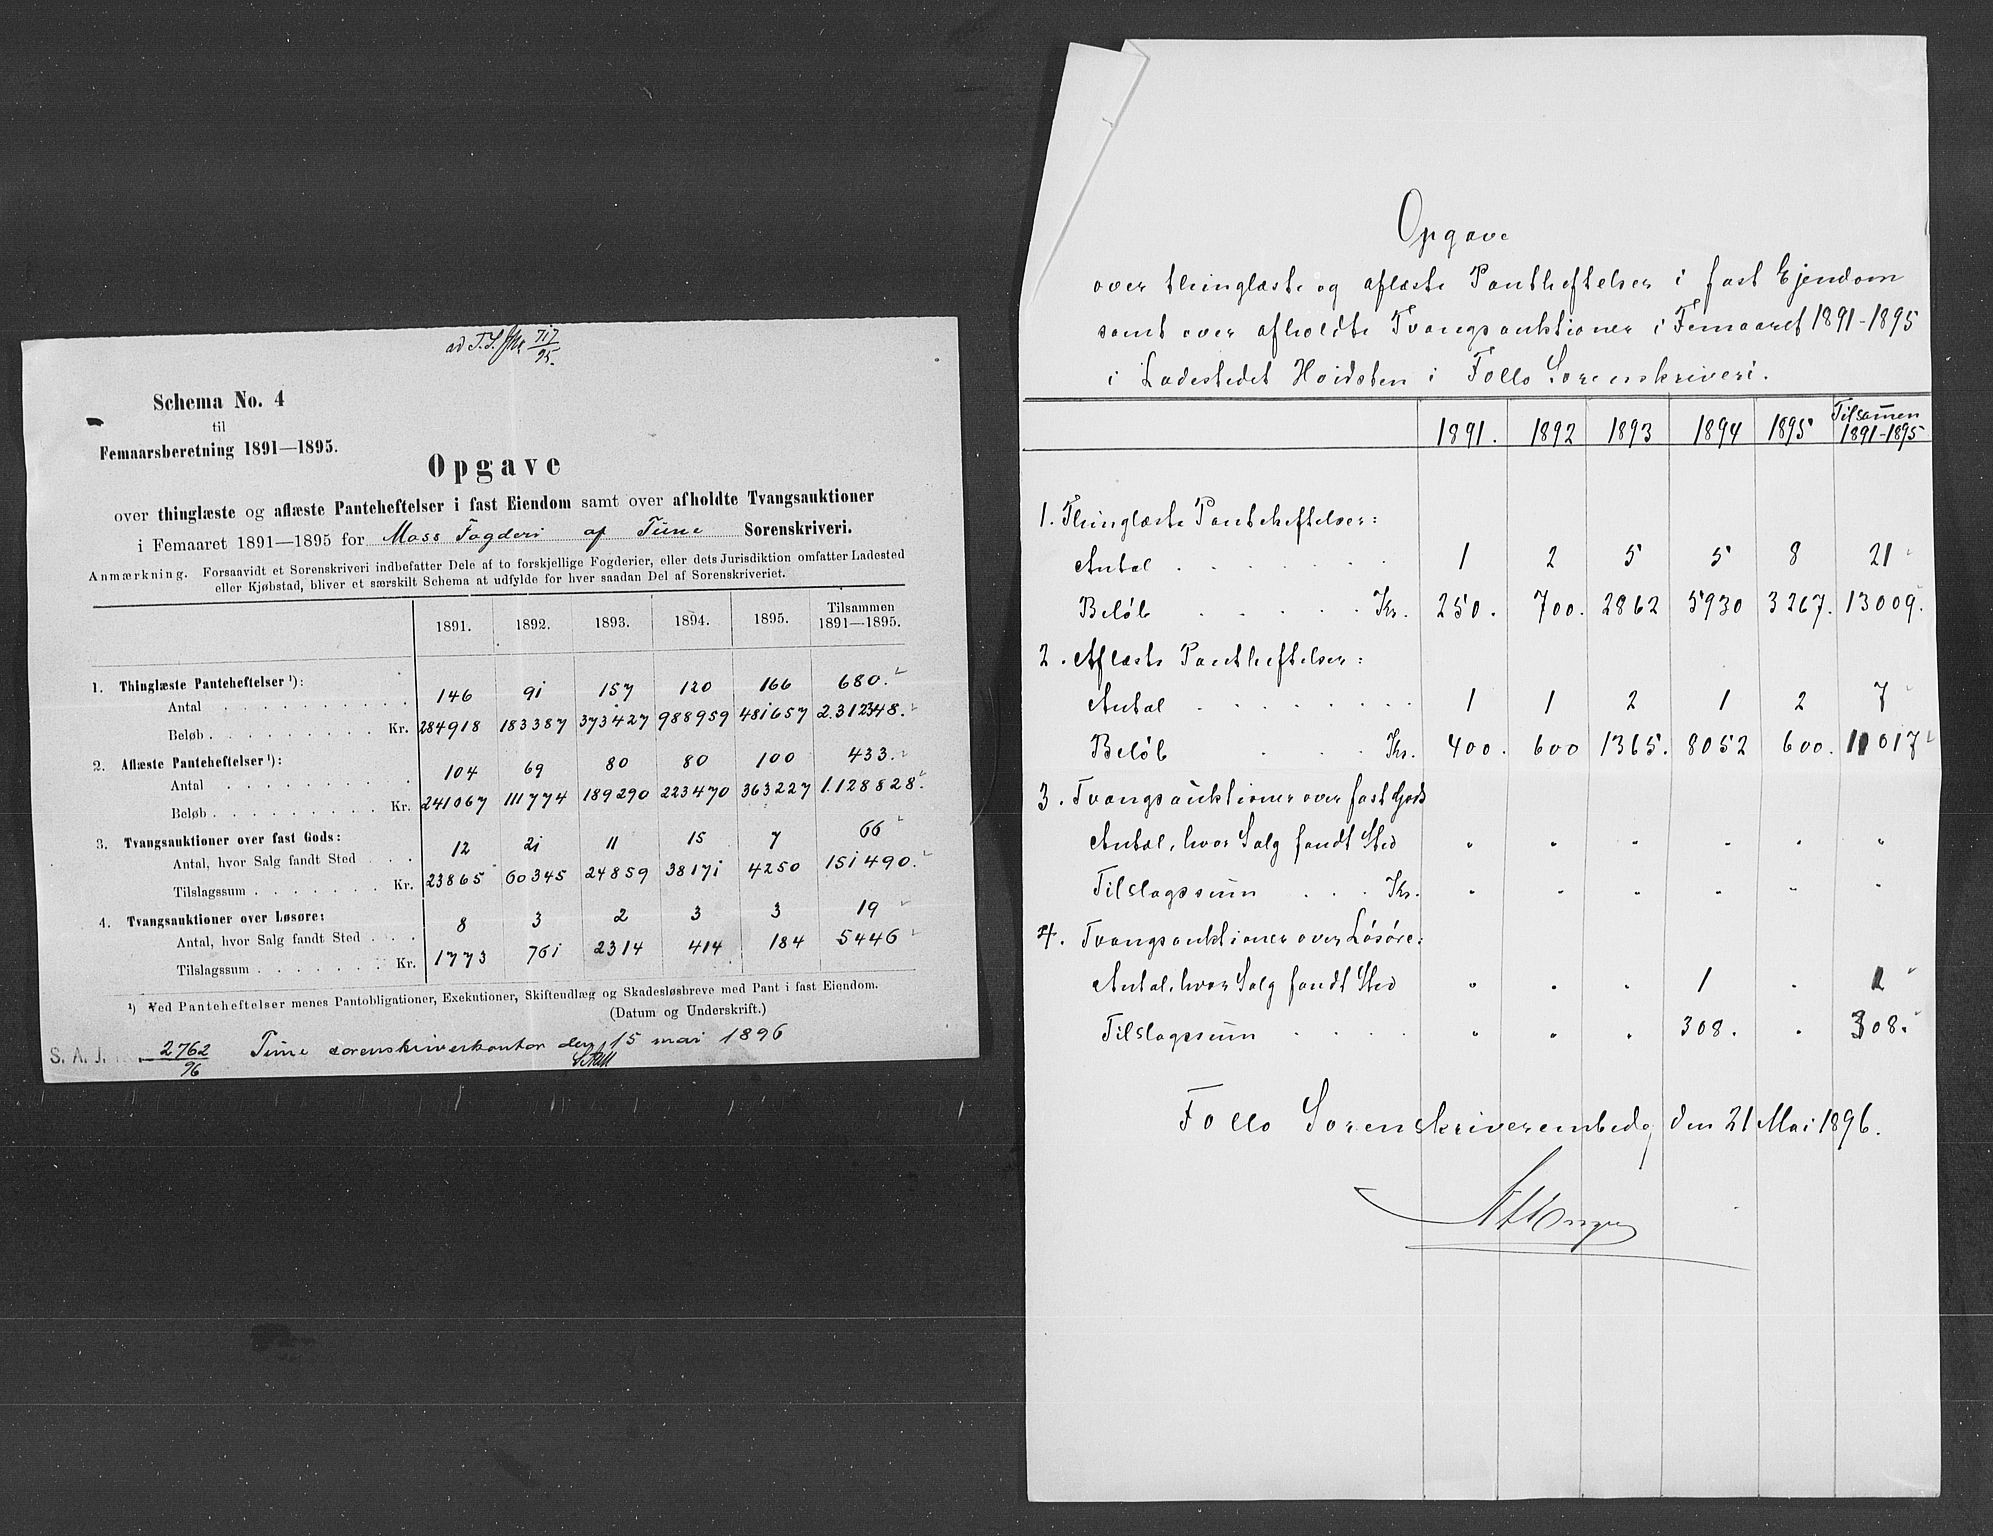 ad T. S. 717/95.
Schema No. 4
til
Femaarsberetning 1891—1895.
Opgave
over thinglæste og aflæste Panteheftelser i fast Eiendom samt over afholdte Tvangsauktioner
i Femaaret 1891—1895 for Moss Fogderi af Tune Sorenskriveri.
Anmærkning. Forsaavidt et Sorenskriveri indbefatter Dele af to forskjellige Fogderier, eller dets Jurisdiktion omfatter Ladested
eller Kjøbstad, bliver et særskilt Schema at udfylde for hver saadan Del af Sorenskriveriet.
1891. 1892. 1893. 1894. 1895. Tilsammen 1891—1895.
1. Thinglæste Panteheftelser ¹):
Antal 146 91 157 120 166 680.
Beløb Kr. 284918 183387 373427 988959 481657 2.312348.
2. Aflæste Panteheftelser ¹):
Antal 104 69 80 80 100 433.
Beløb Kr. 241067 111774 189290 223470 363227 1.128828.
3. Tvangsauktioner over fast Gods:
Antal, hvor Salg fandt Sted 12 21 11 15 7 66
Tilslagssum Kr. 23865 60345 24859 38171 4250 151490.
4. Tvangsauktioner over Løsøre:
Antal, hvor Salg fandt Sted 8 3 2 3 3 19
Tilslagssum Kr. 1773 761 2314 414 184 5446
¹) Ved Panteheftelser menes Pantobligationer, Exekutioner, Skifteudlæg og Skadesløsbreve med Pant i fast Eiendom.
(Datum og Underskrift.)
Tune sorenskriverkontor den 15 mai 1896
S. A. J. 2762/96
Opgave
over thinglæste og aflæste Pantheftelser i fast Ejendom
samt over afholdte Tvangsauktioner i Femaaret 1891-1895
i Ladestedet Hvidsten i Follo Sorenskriveri.
1891. 1892 1893 1894 1895 Tilsamen 1891-1895
1. Thinglæste Panteheftelser:
Antal 1 2 5 5 8 21
Beløb Kr. 250. 700. 2862 5930 3267. 13009.
2. Aflæste Pantheftelser:
Antal 1 1 2 1 2 7
Beløb Kr. 400. 600 1365. 8052 600. 11017
3. Tvangsauktioner over fast Gods
Antal, hvor Salg fandt Sted " " " " " "
Tilslagssum Kr. " " " " " "
4. Tvangsauktioner over Løsøre:
Antal, hvor Salg fandt Sted " " " 1 " 1
Tilslagssum " " " 308. " 308.
Follo Sorenskriverembede, den 21 Mai 1896.